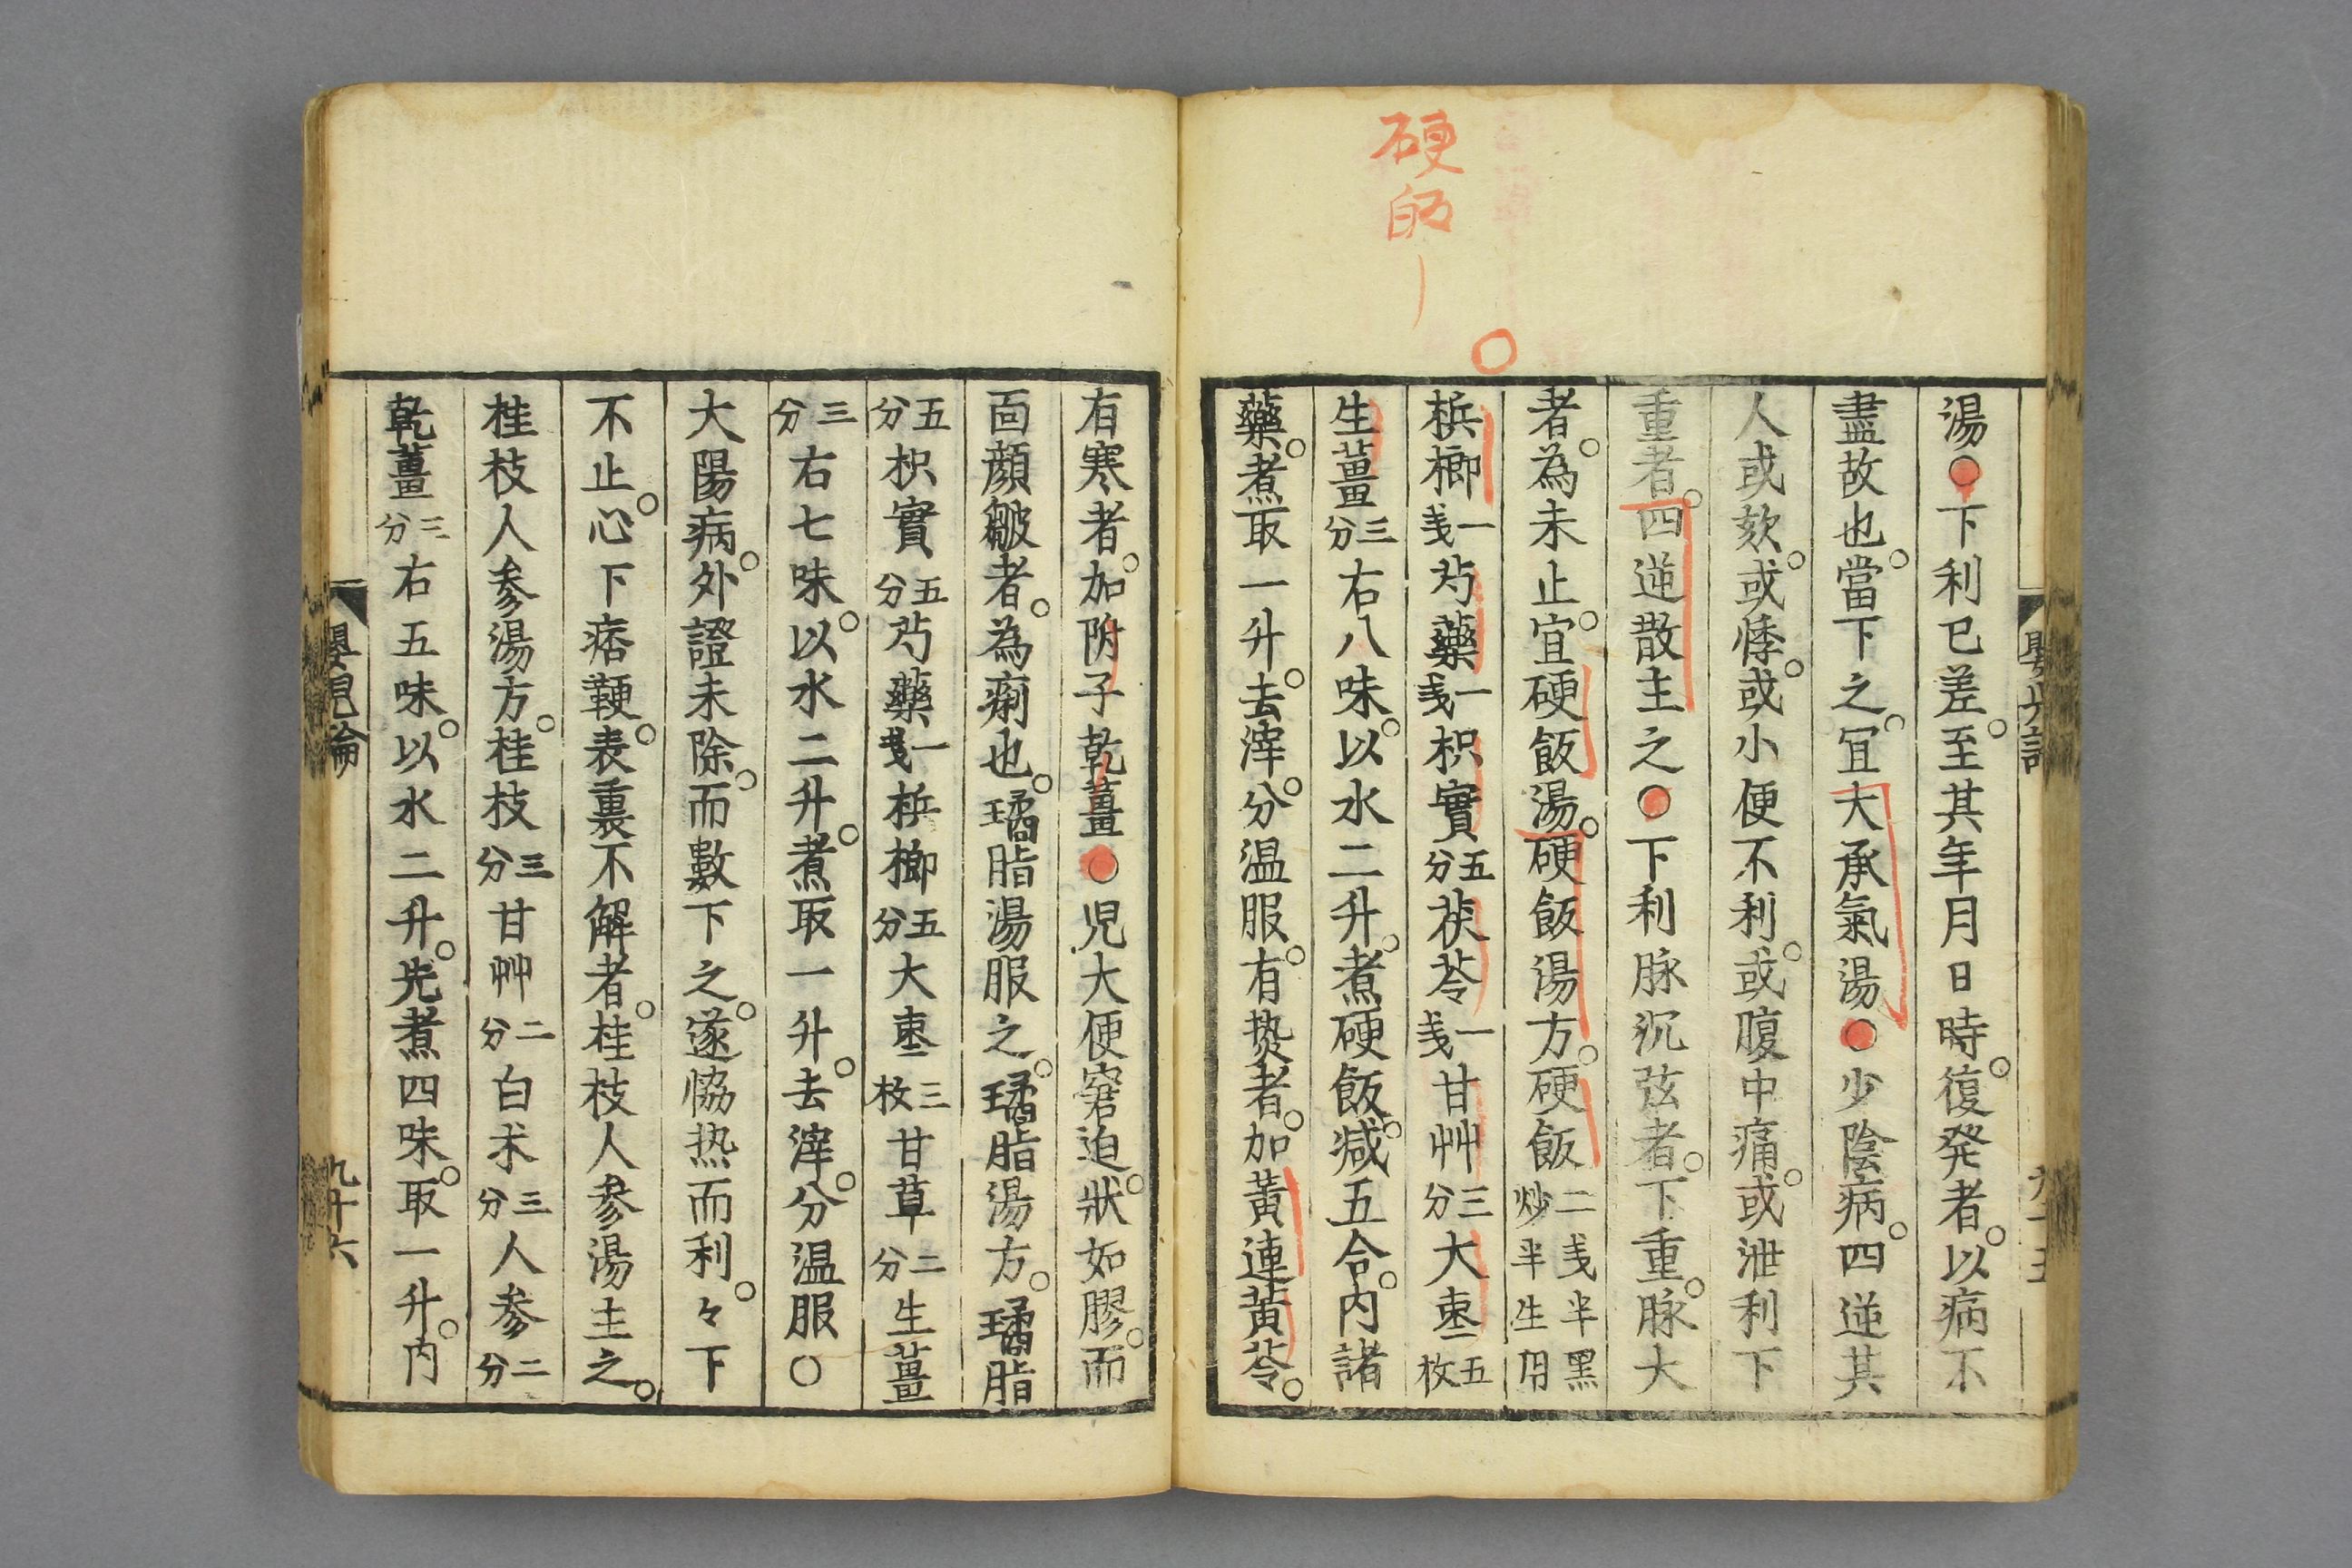 硬飯
湯○下利已差。至其年月日時。復発者。以病不
盡故也。當下之。宜大承氣湯○少陰病。四逆其
人或欬。或悸。或小便不利。或腹中痛。或泄利下
重者。四逆散主之○下利脉沉弦者。下重。脉大
者。為未止。宜硬飯湯。硬飯湯方。硬飯二戔半黑炒半生用
梹榔一戔芍藥一戔枳實五分茯苓一戔甘艸三分大棗五枚
生薑三分右八味。以水二升。煮硬飯。減五合。内諸
藥。煮取一升。去滓。分温服。有热者。加黃連黃芩。
有寒者。加附子乾薑○児大便窘迫。狀如膠。而
面顔皺者。為痢也。璚脂湯服之。璚脂湯方。璚脂
五分枳實五分芍藥一戔梹榔五分大棗三枚甘草二分生薑
三分右七味。以水二升。煮取一升。去滓。分温服○
大陽病。外證未除。而數下之。遂恊热而利。々下
不止。心下痞鞕。表裏不解者。桂枝人參湯主之。
桂枝人參湯方。桂枝三分甘艸二分白朮三分人參二分
乾薑三分右五味。以水二升。先煮四味。取一升。内
嬰児論
九十六